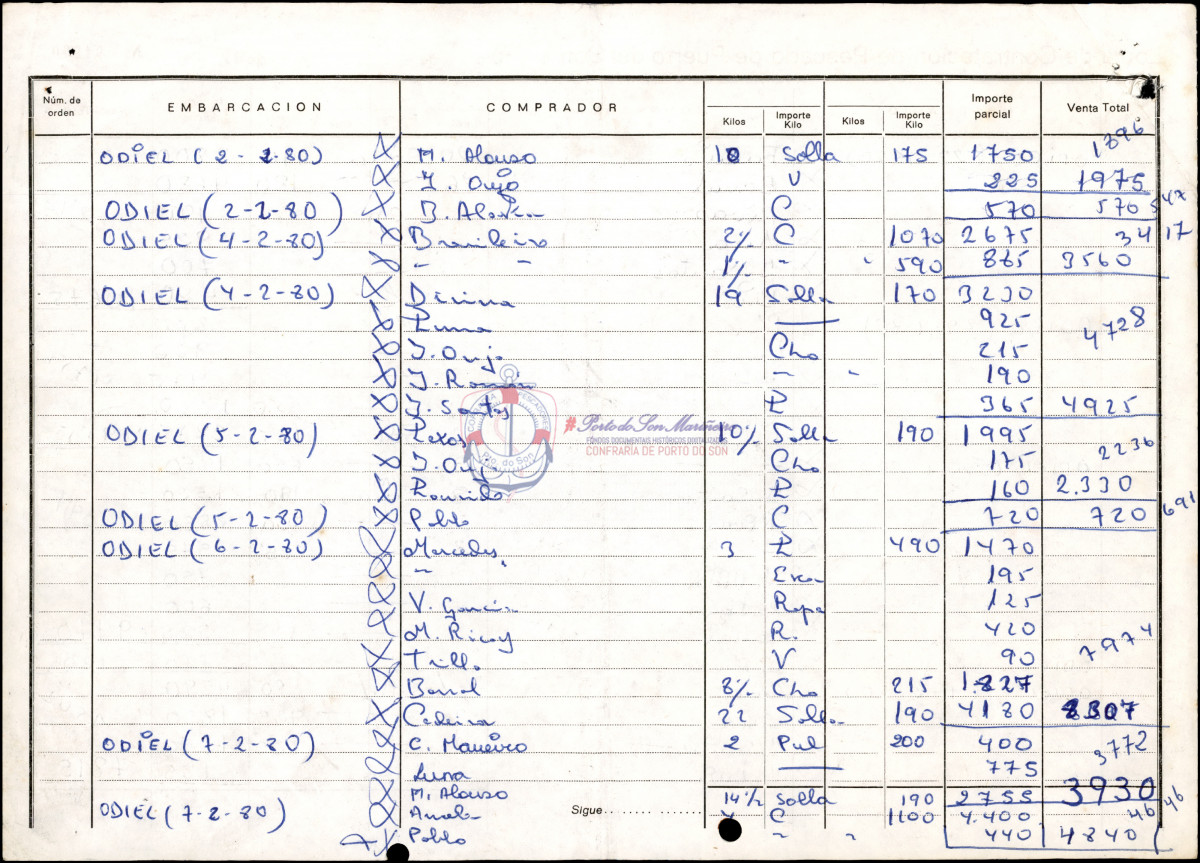 Núm. de orden EMBARCACION COMPRADOR Kilos Importe Kilo Kilos Importe Kilo Importe parcial Venta Total
1896
ODIEL (2-2-80) M. Alonso 10 Solla 175 1750
V 225 1975
ODIEL (2-2-80) C 570 570
ODIEL (4-2-80) Brasileiro 2½ C 1070 2675 34 17
" " 1½ " " 590 885 3560
ODIEL (4-2-80) Divina 19 Solla 170 3230
925 4728
Cho 215
J. Román " " 190
J. Santos P 365 4925
ODIEL (5-2-80) 10½ Solla 190 1995
Cho 175 2236
P 160 2.330
ODIEL (5-2-80) Pablo C 720 720 691
ODIEL (6-2-80) Mercedes 3 P 490 1470
" " 195
V. García Rapa 125
M. Ricoy R. 420
Trillo V 90 7974
Barral 8½ Cho 215 1.827
Cadeira 22 Solla 190 4180 8307
ODIEL (7-2-80) C. Maneiro 2 Pul 200 400 3772
Luna 775
M. Alonso 14½ Solla 190 2755 3930
ODIEL (7-2-80) Sigue 4 C 1100 4.400 46 46
Pablo " " 440 4840
CONFRARÍA DE PESCADORES
Pto. do Son
#PortodoSonMariñeiro
FONDOS DOCUMENTAIS HISTÓRICOS DIXITALIZADOS
CONFRARÍA DE PORTO DO SON